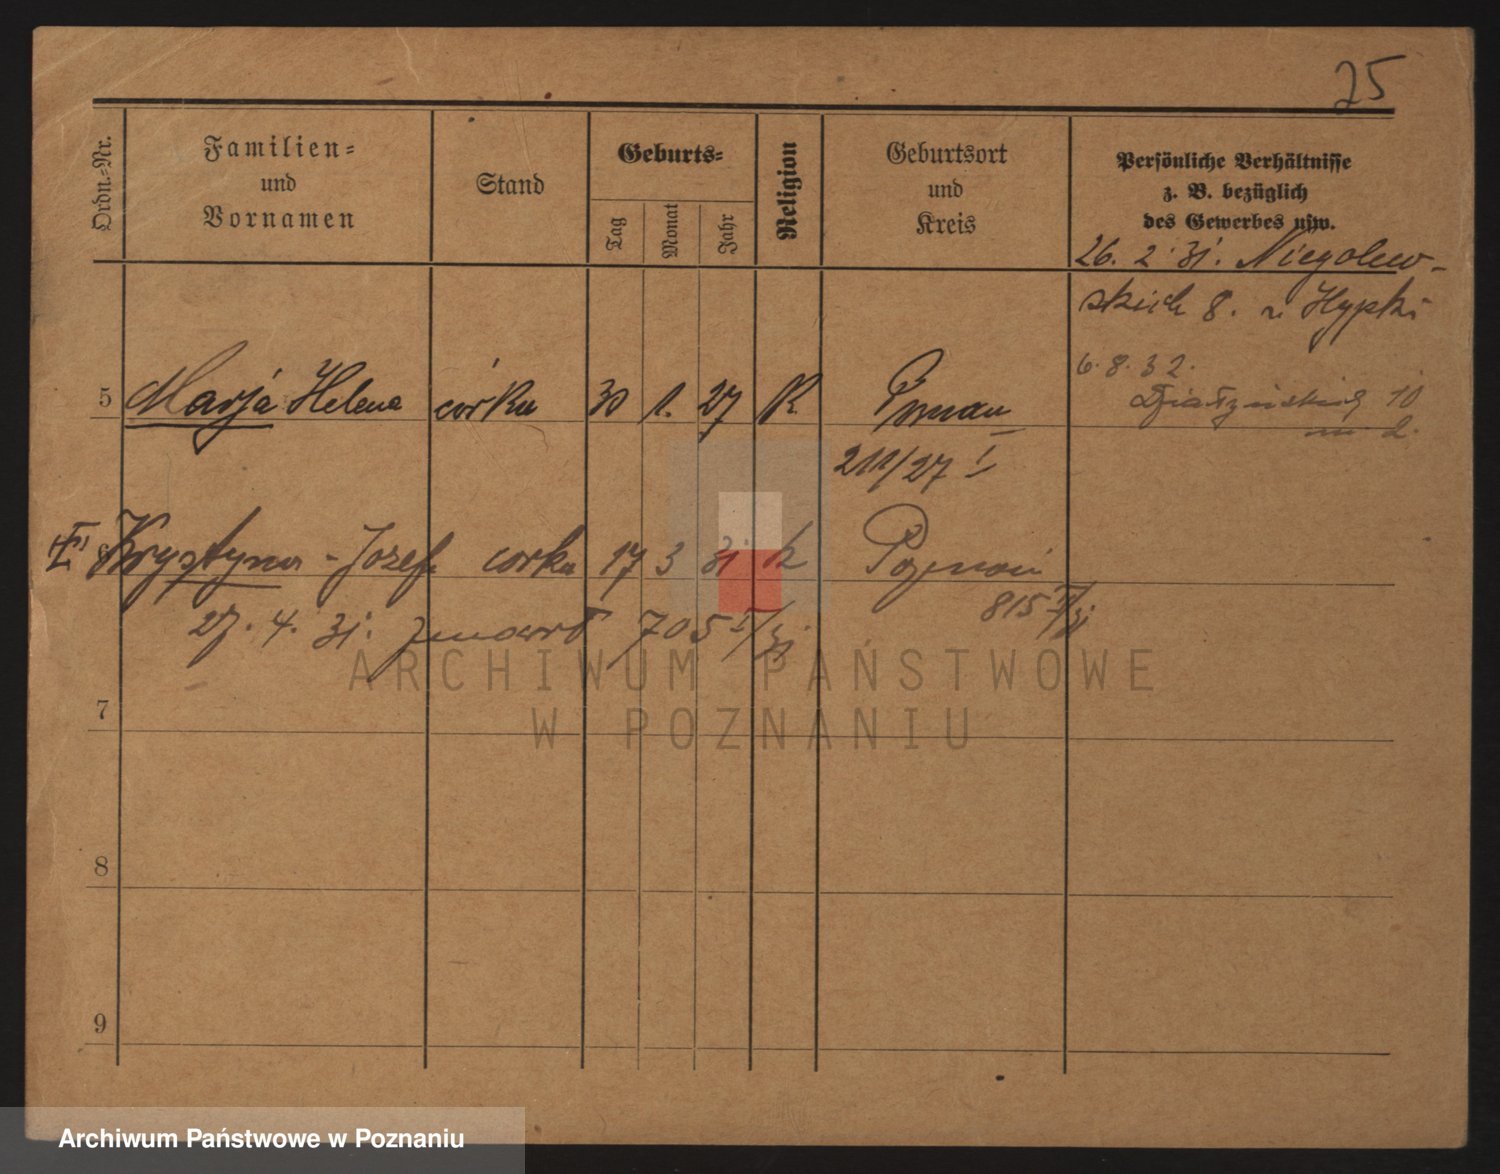 25
Ordn.-Nr.
Familien-
und
Vornamen
Stand
Geburts-
Tag
Monat
Jahr
Religion
Geburtsort
und
Kreis
Persönliche Verhältnisse
z. B. bezüglich
des Gewerbes usw.
26. 2. 31. Niegolew-
skich 8. u Hypki
6. 8. 32.
Działyńskich 10
m 2.
5 Marja Helena córka 30 1. 27 K Poznań
211/27 I
6 Krystyna - Józefa corka 17 3 31 k Poznań
815 I/31
27. 4. 31. zmarł 705 I/31
7
8
9
ARCHIWUM PAŃSTWOWE
W POZNANIU
Archiwum Państwowe w Poznaniu